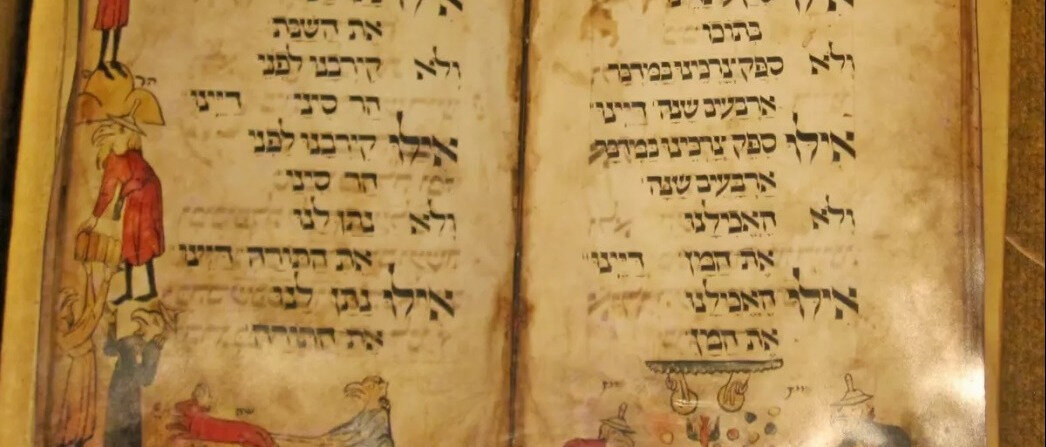 אילו
בתוכו
ולא ספק צרכינו במדבר
ארבעים שנה דיינו
אילו ספק צרכינו במדבר
ארבעים שנה
ולא האכילנו
את המן דיינו
אילו האכילנו
את המן
אילו
את השבת
ולא קירבנו לפני
הר סיני דיינו
אילו קירבנו לפני
הר סיני
ולא נתן לנו
את התורה דיינו
אילו נתן לנו
את התורה